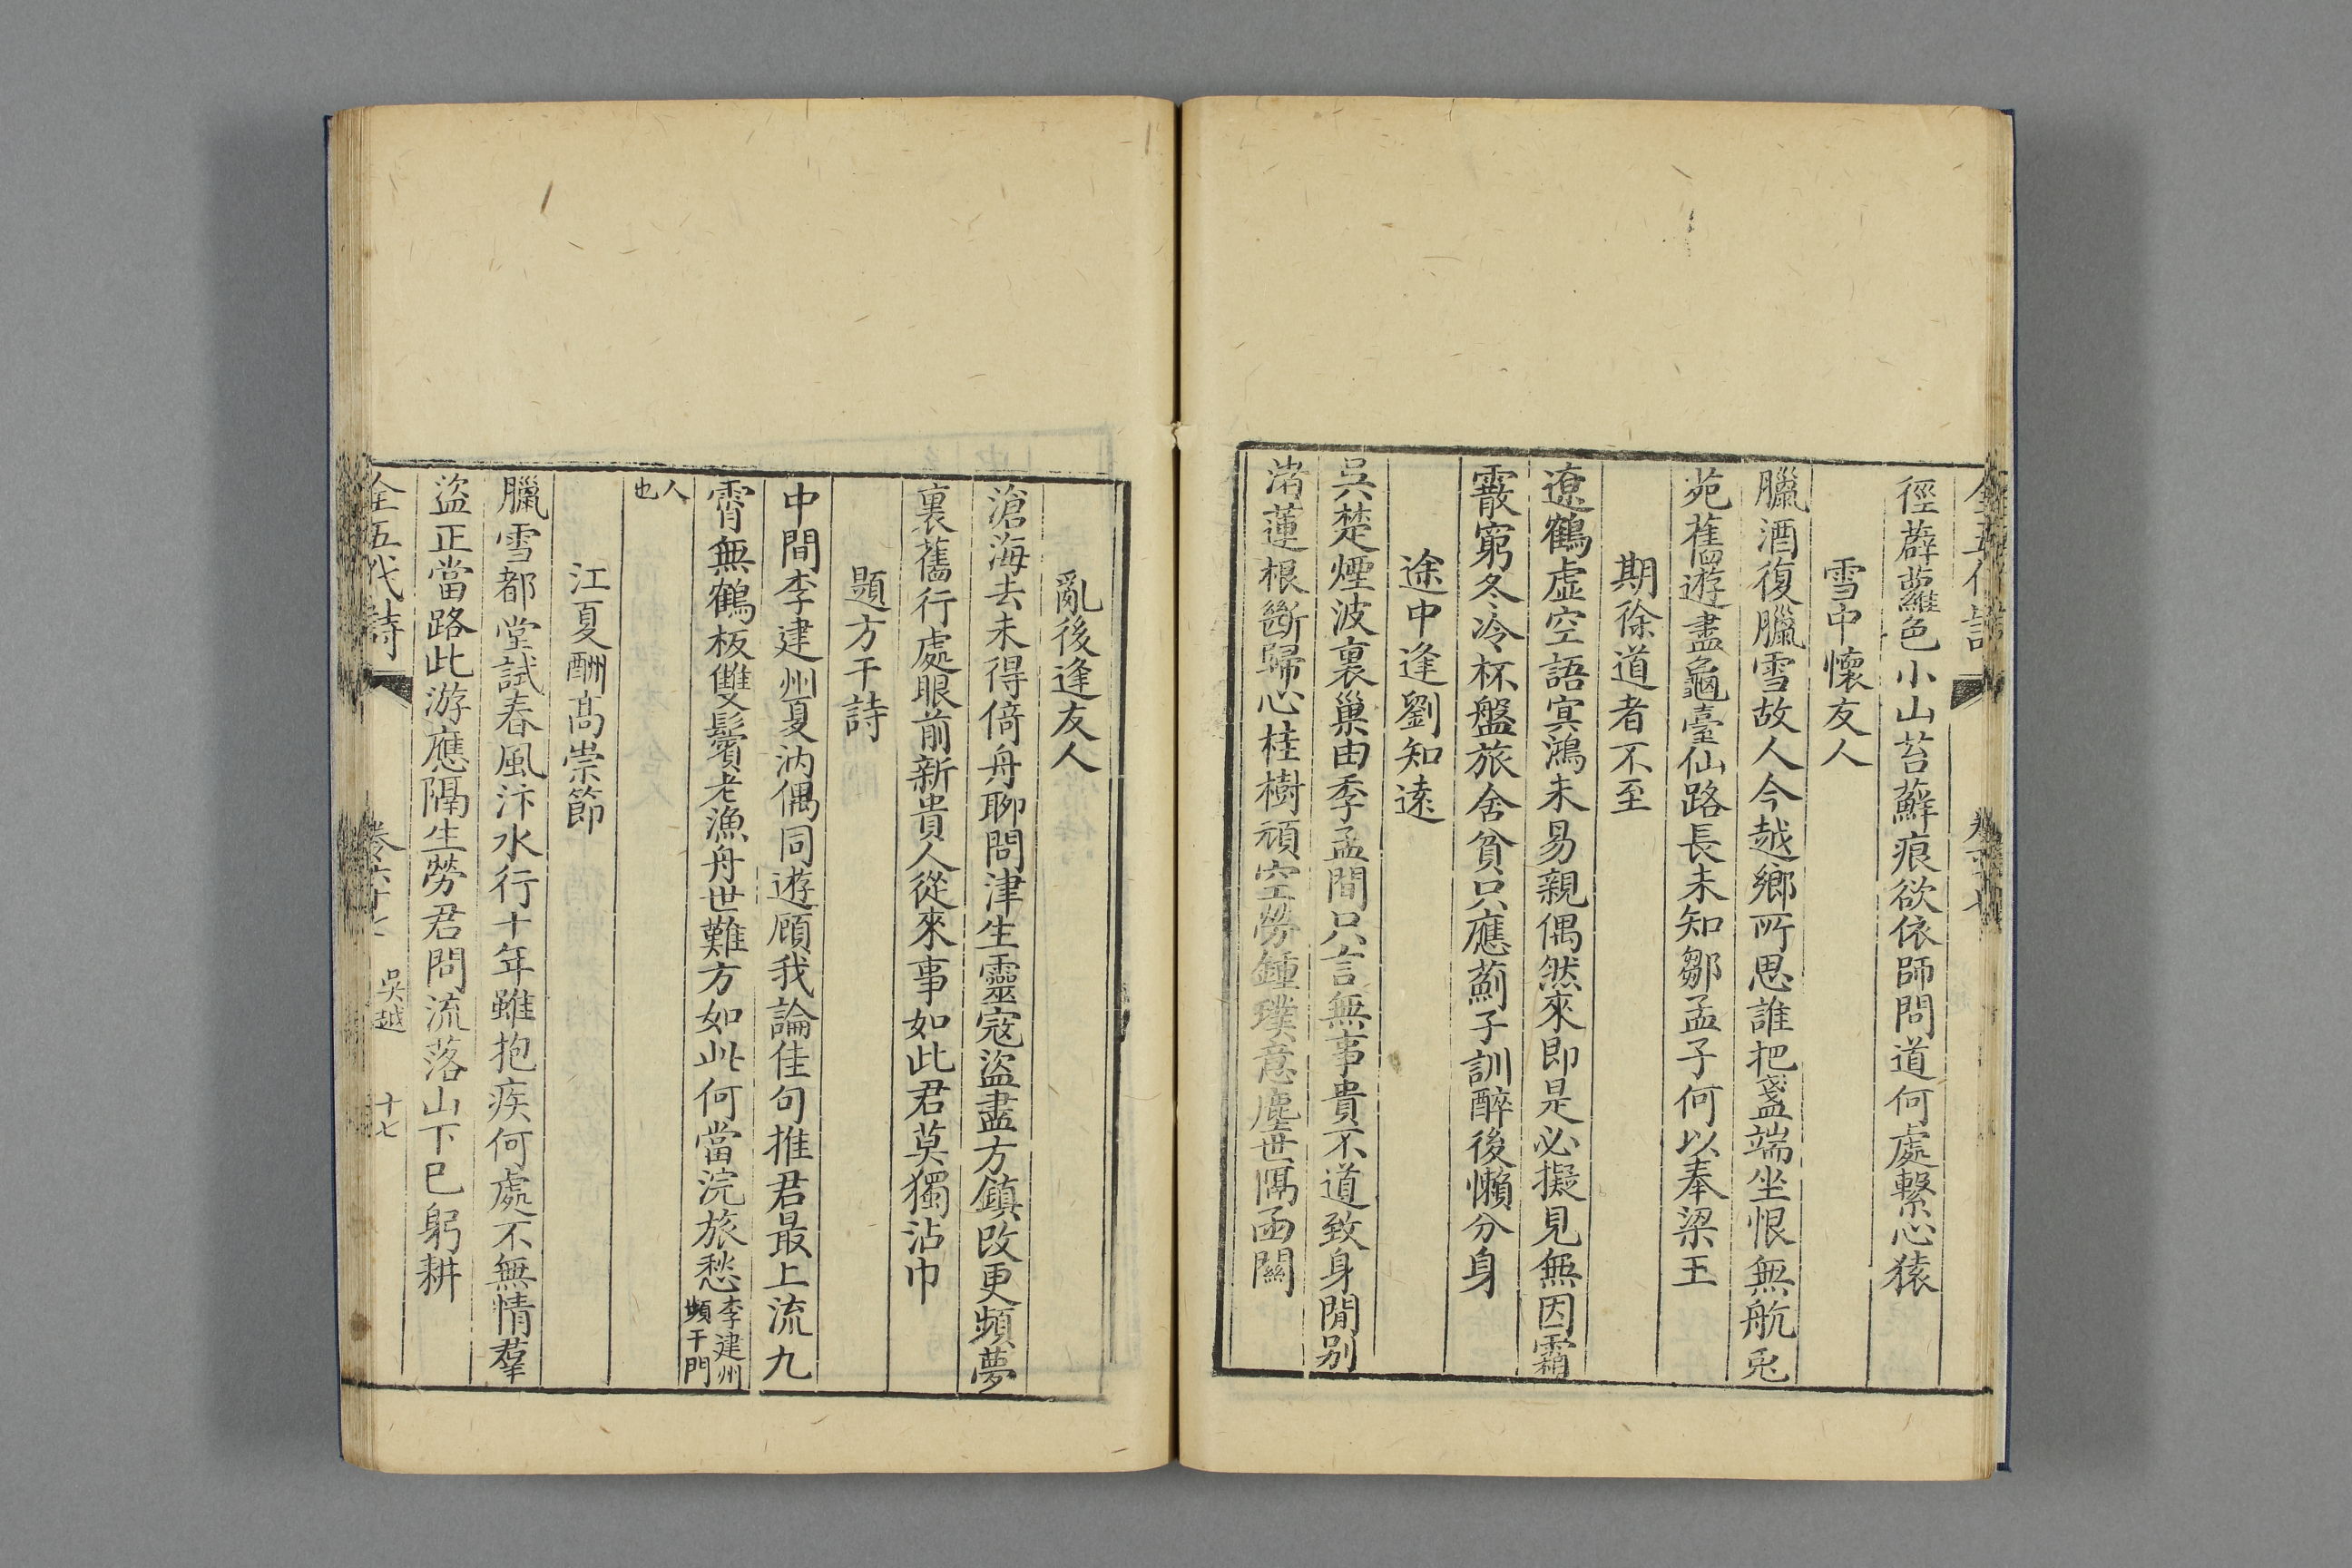 全五代詩
徑薜蘿色小山苔蘚痕欲依師問道何處繫心猿
雪中懷友人
臘酒復臘雪故人今越鄉所思誰把盞端坐恨無航兎
苑舊遊盡龜臺仙路長未知鄒孟子何以奉梁王
期徐道者不至
遼鶴虛空語冥鴻未易親偶然來即是必擬見無因霜
霰窮冬冷杯盤旅舍貧只應薊子訓醉後懶分身
途中逢劉知遠
吳楚煙波裏巢由季孟間只言無事貴不道致身閒别
渚蓮根斷歸心桂樹頑空勞鍾璞意塵世隔函關
亂後逢友人
滄海去未得倚舟聊問津生靈寇盜盡方鎮改更頻夢
裏舊行處眼前新貴人從來事如此君莫獨沾巾
題方干詩
中間李建州夏汭偶同遊顧我論佳句推君最上流九
霄無鶴板雙鬢老漁舟世難方如此何當浣旅愁李建州
頻干門
人
也
江夏酬高崇節
臘雪都堂試春風汴水行十年雖抱疾何處不無情羣
盜正當路此游應隔生勞君問流落山下已躬耕
全五代詩 卷六十七 吳越 十七